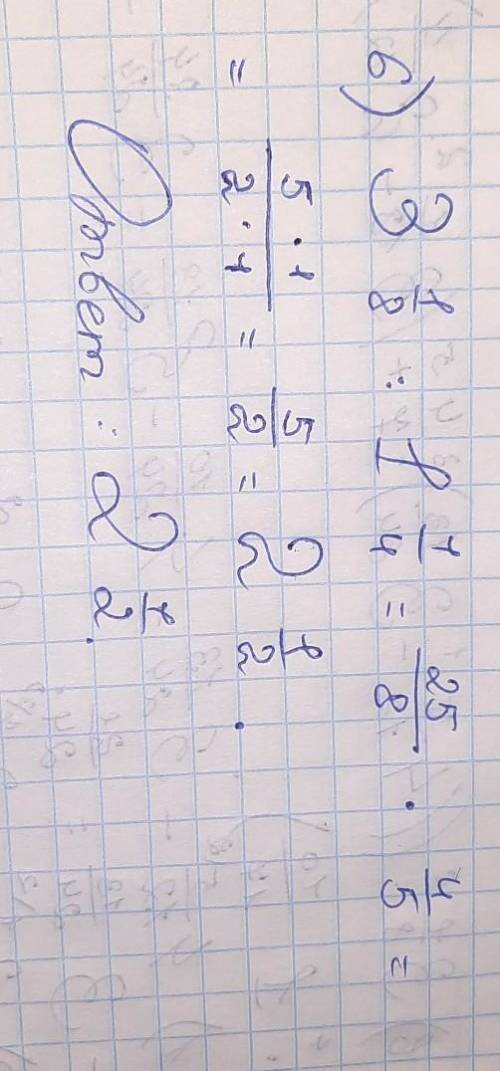 6) 3 1/8 : 1 1/4 = 25/8 · 4/5 =
= 5 · 1 / 2 · 1 = 5/2 = 2 1/2.
Ответ: 2 1/2.